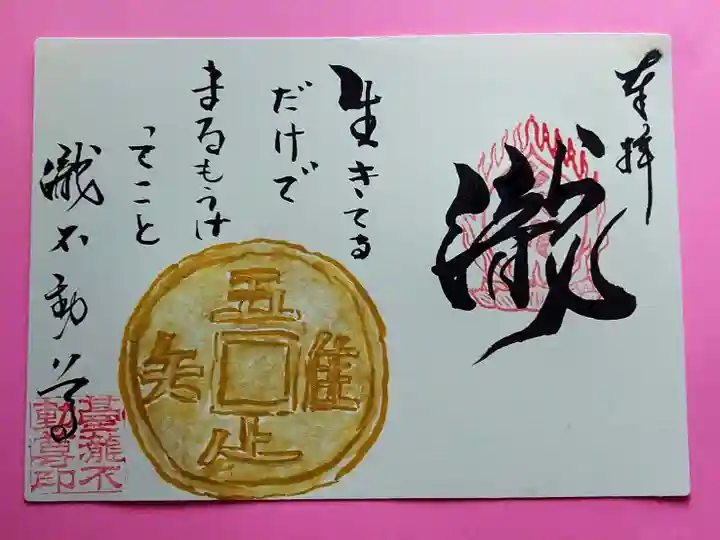 奉拝
瀧
生きてる
だけで
まるもうけ
ってこと
五
隹
止
矢
瀧不動尊
瀧不
動尊印